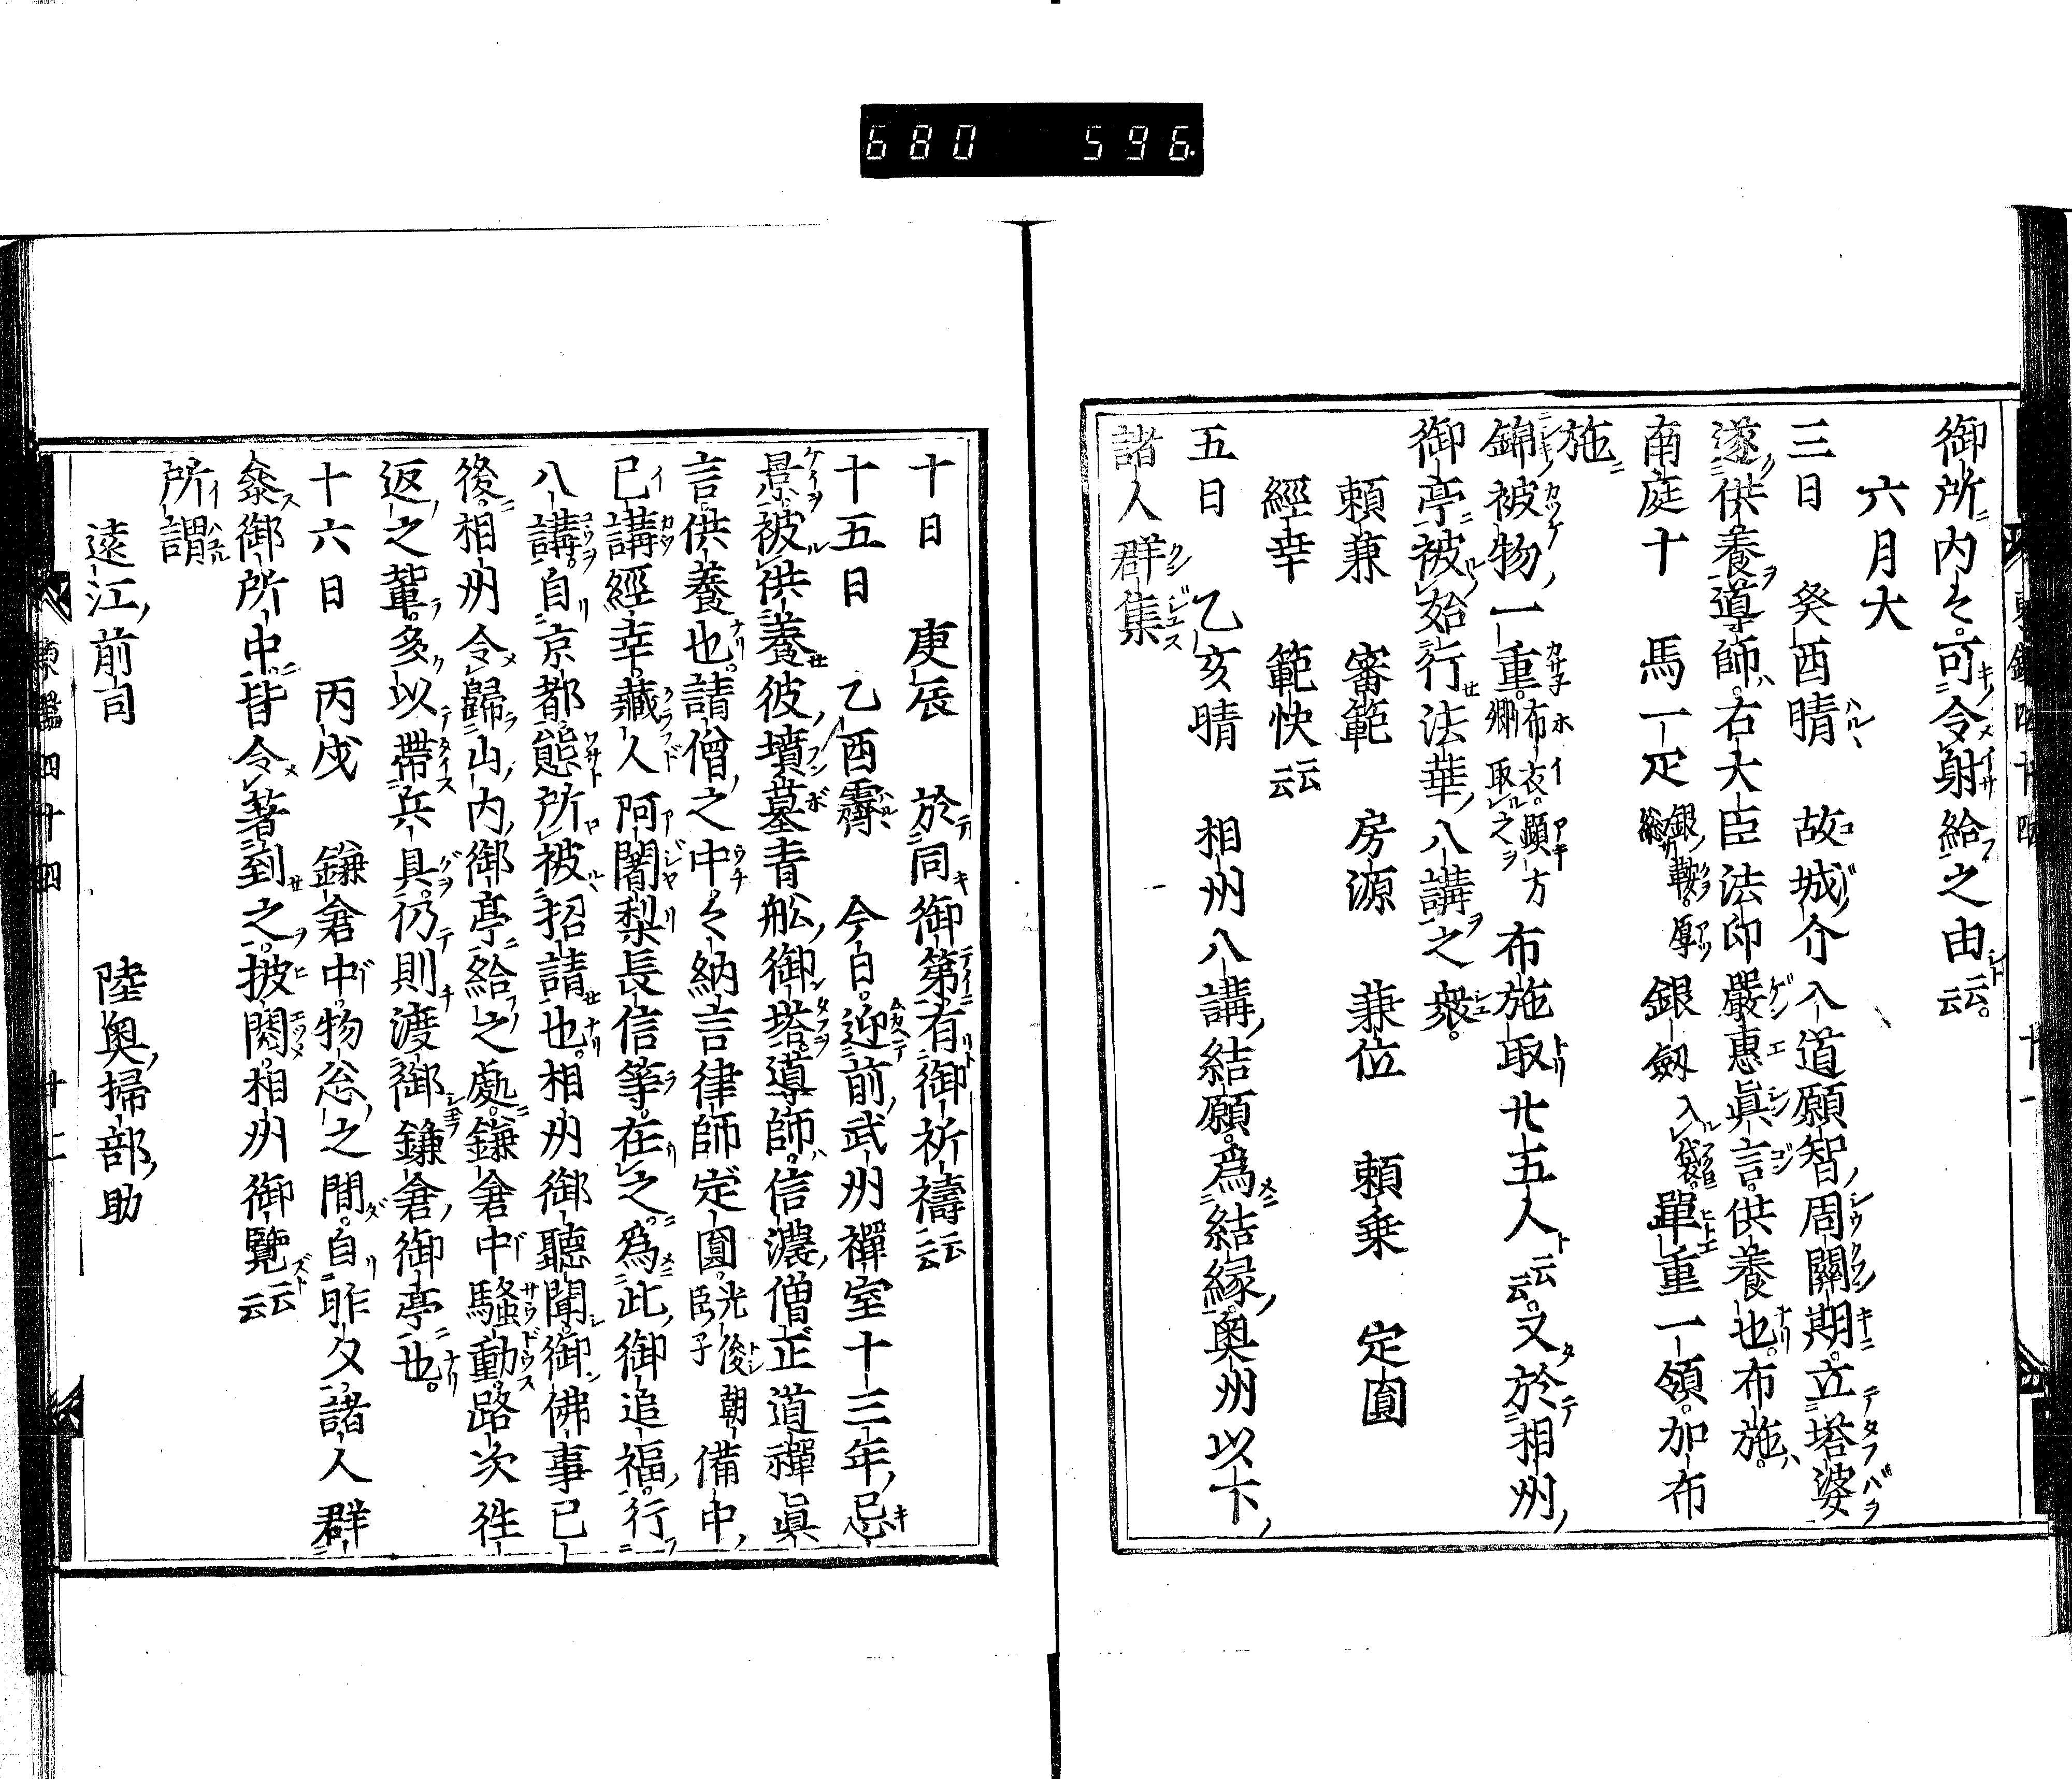 680 596.
御所内々可令射給之由云云
六月大
三日 癸酉晴 故城介入道願智周關期立塔婆
遂供養導師右大臣法印嚴惠眞言供養也布施
南庭十 馬一疋銀鞍厚總 銀劔入袋單重一領加布
施
錦被物一重布衣顯方卿取之布施取廿五人云云又於相州
御亭被始行法華八講之衆
頼兼 審範 房源 兼位 頼乗 定圓
經幸 範快云云
五日 乙亥晴 相州八講結願爲結縁奥州以下
諸人群集
十日 庚辰 於同御第有御祈禱云云
十五日 乙酉霽 今日迎前武州禪室十三年忌
景被供養彼墳墓青舩御塔導師信濃僧正道禪眞
言供養也請僧之中々納言律師定圓光俊朝臣子備中
已講經幸藏人阿闍梨長信等在之爲此御追福行
八講自京都態所被招請也相州御聽聞御佛事已
後相州令歸山内御亭給之處鎌倉中騷動路次往
返之輩多以帶兵具仍則渡御鎌倉御亭也
十六日 丙戌 鎌倉中物忩之間自昨夕諸人群
參御所中皆令著到之披閲相州御覽云云
所謂
遠江前司 陸奥掃部助
東鑑四十四